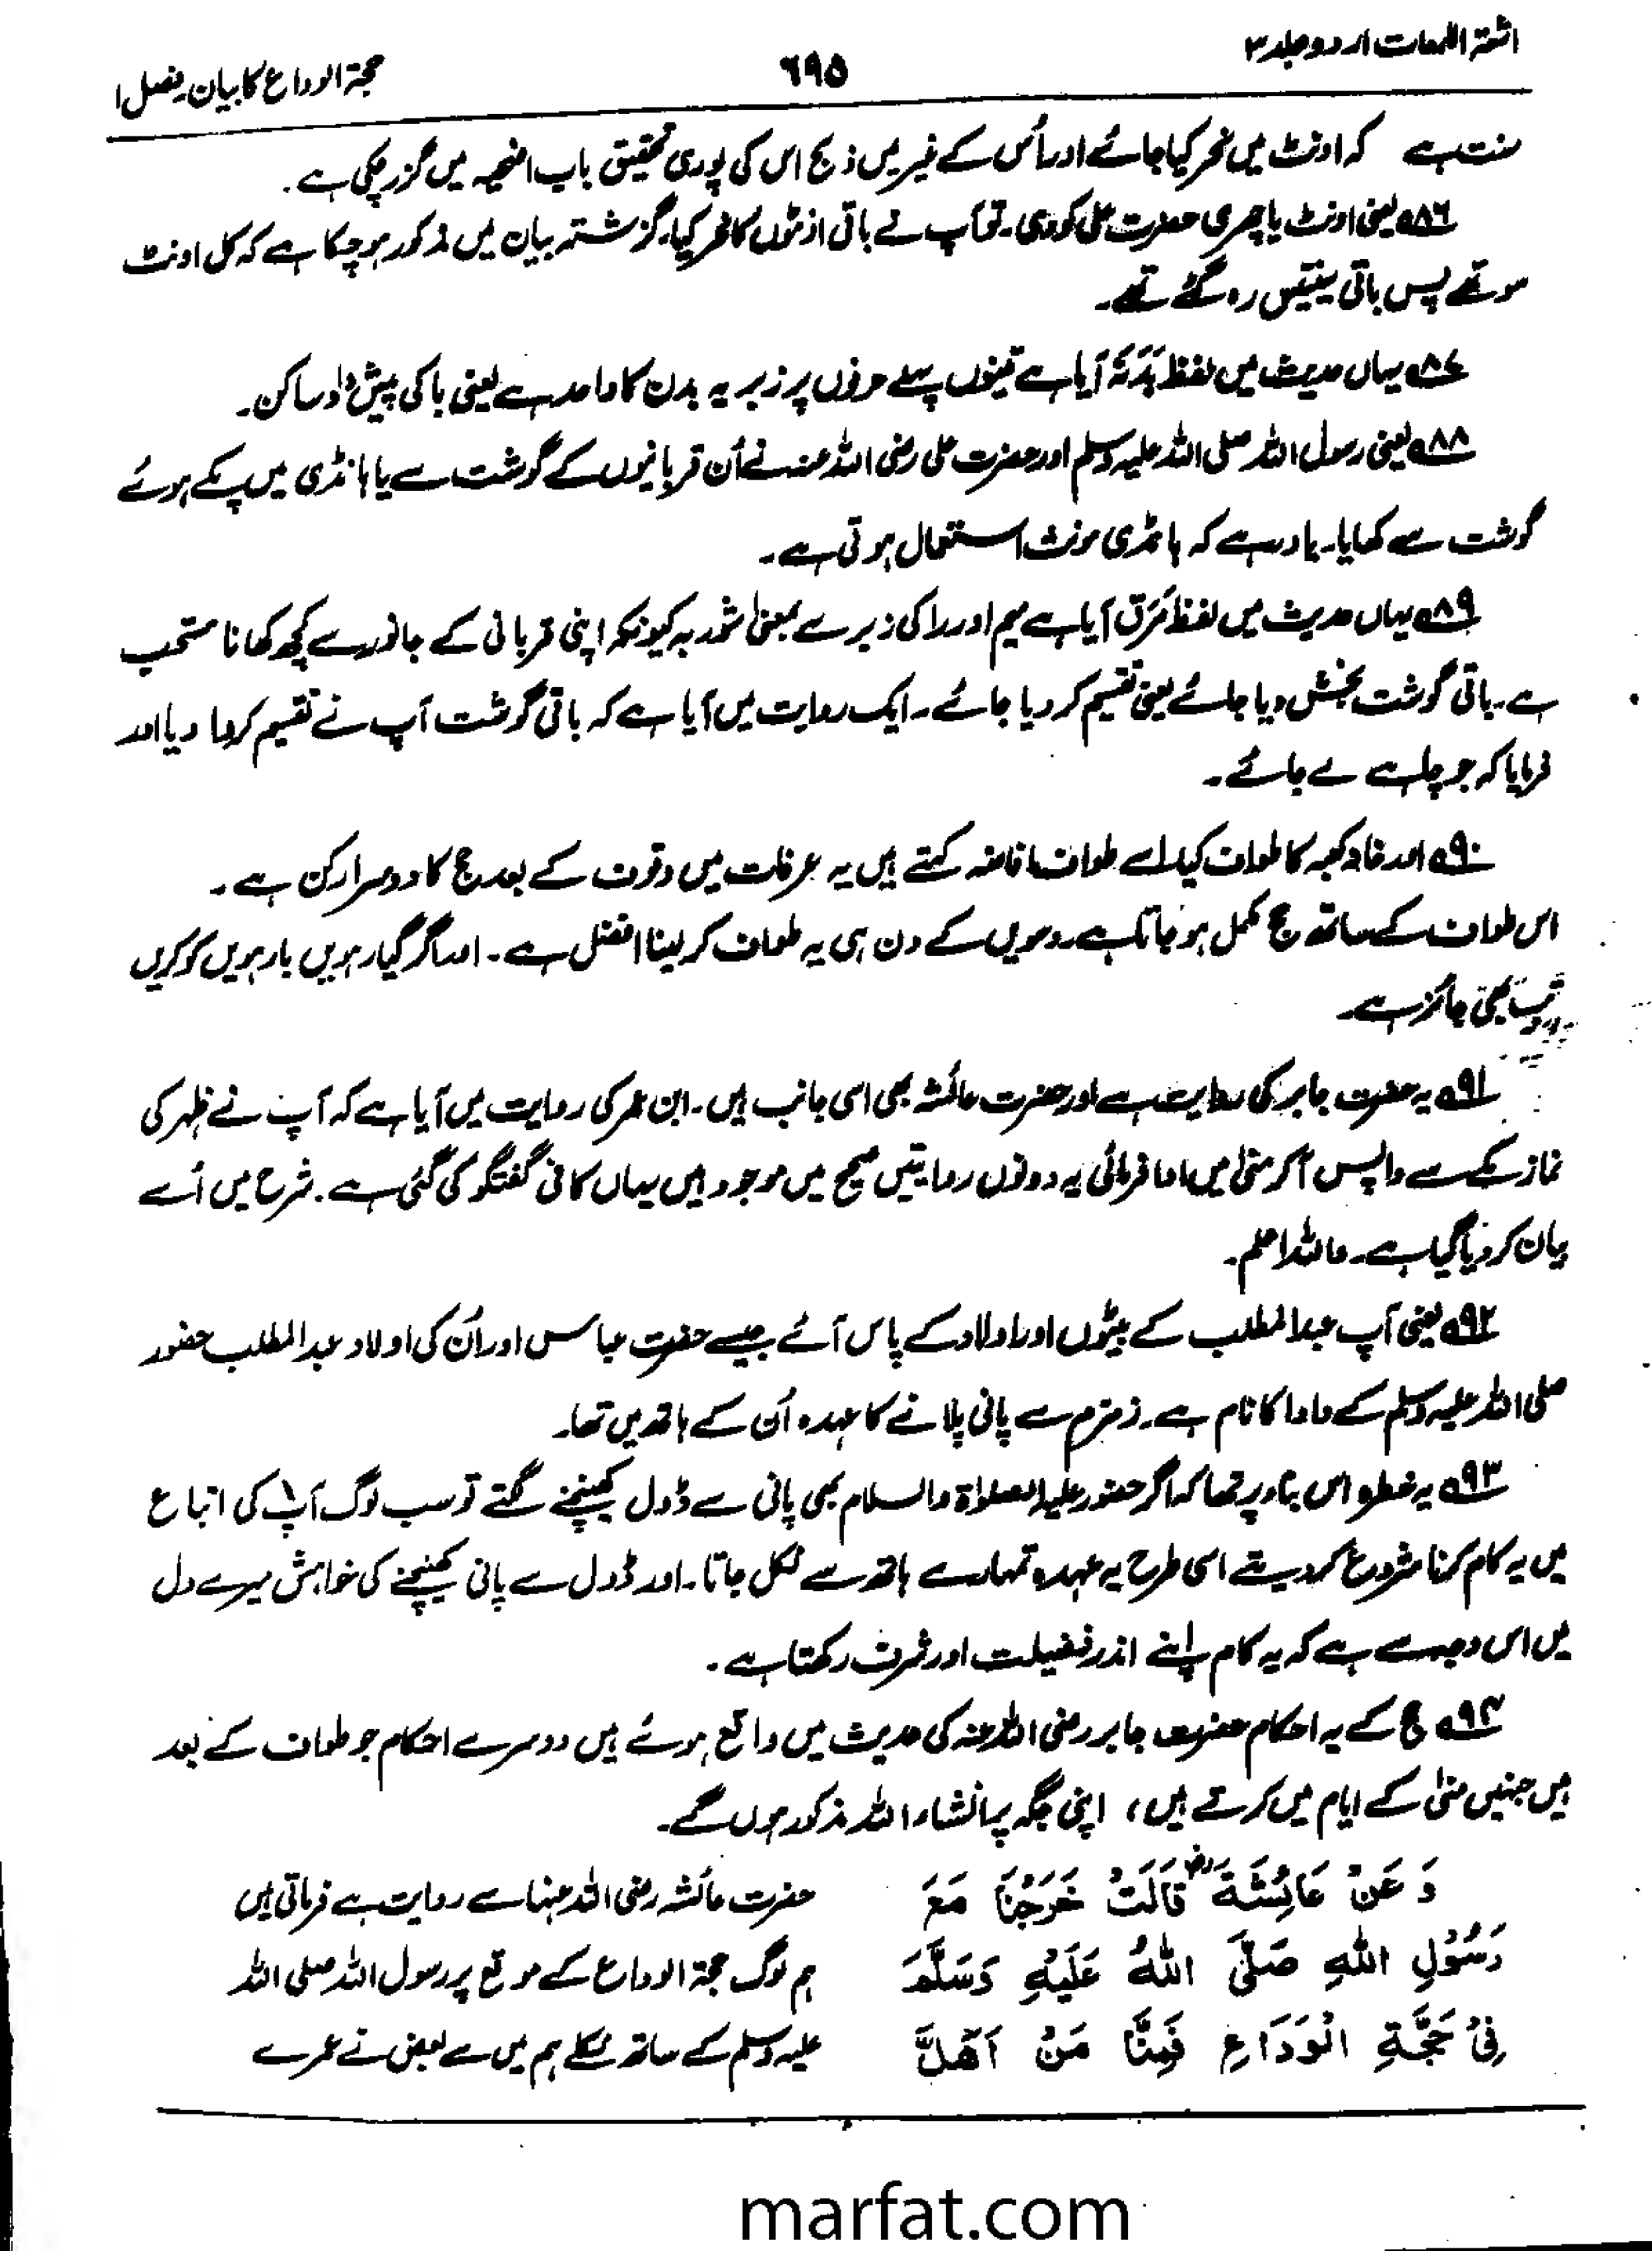 اشعۃ اللمعات اردو جلد ۳
۶۹۵
حجۃ الوداع کا بیان فصل ۱
سنت ہے کہ اونٹ میں نحر کیا جائے اور اُس کے غیر میں ذبح اس کی پوری تحقیق باب اضحیہ میں گزر چکی ہے۔
۸۶ یعنی اونٹ یا چھری حضرت علی کو دی۔ تو آپ نے باقی اونٹوں کا نحر کیا۔ گزشتہ بیان میں مذکور ہو چکا ہے کہ کل اونٹ
سو تھے پس باقی سینتیس رہ گئے تھے۔
۸۷ یہاں حدیث میں لفظ بَدَنَۃ آیا ہے تینوں پہلے حرفوں پر زبر یہ بدن کا واحد ہے یعنی با کی پیش و دال ساکن۔
۸۸ یعنی رسول اللہ صلی اللہ علیہ وسلم اور حضرت علی رضی اللہ عنہ نے اُن قربانیوں کے گوشت سے یا ہانڈی میں پکے ہوئے
گوشت سے کھایا۔ یاد رہے کہ ہانڈی مونث استعمال ہوتی ہے۔
۸۹ یہاں حدیث میں لفظ مَرَق آیا ہے میم اور را کی زبر سے بمعنیٰ شوربہ کیونکہ اپنی قربانی کے جانور سے کچھ کھانا مستحب
ہے۔ باقی گوشت بخش دیا جائے یعنی تقسیم کر دیا جائے۔ ایک روایت میں آیا ہے کہ باقی گوشت آپ نے تقسیم کروا دیا اور
فرمایا کہ جو چاہے لے جائے۔
۹۰ اور خانہ کعبہ کا طواف کیا۔ اسے طواف افاضہ کہتے ہیں یہ عرفات میں وقوف کے بعد حج کا دوسرا رکن ہے۔
اس طواف کے ساتھ حج مکمل ہو جاتا ہے۔ دسویں کے دن ہی یہ طواف کر لینا افضل ہے۔ اور اگر گیارہویں بارہویں کو کریں
تب بھی جائز ہے
۹۱ یہ حضرت جابر کی روایت ہے اور حضرت عائشہ بھی اسی جانب ہیں۔ ابن عمر کی روایت میں آیا ہے کہ آپ نے ظہر کی
نماز مکے سے واپس آکر منیٰ میں ادا فرمائی یہ دونوں روایتیں صحیح میں موجود ہیں یہاں کافی گفتگو کی گئی ہے۔ شرح میں اُسے
بیان کر دیا گیا ہے۔ واللہ اعلم۔
۹۲ یعنی آپ عبدالمطلب کے بیٹوں اور اولاد کے پاس آئے جیسے حضرت عباس اور اُن کی اولاد عبدالمطلب حضور
صلی اللہ علیہ وسلم کے دادا کا نام ہے۔ زمزم سے پانی پلانے کا عہدہ اُن کے ہاتھ میں تھا۔
۹۳ یہ خطرہ اس بناء پر تھا کہ اگر حضور علیہ الصلواۃ والسلام بھی پانی سے ڈول کھینچنے لگتے تو سب لوگ آپ کی اتباع
میں یہ کام کرنا شروع کر دیتے اسی طرح یہ عہدہ تمہارے ہاتھ سے نکل جاتا۔ اور ڈول سے پانی کھینچنے کی خواہش میرے دل
میں اس وجہ سے ہے کہ یہ کام اپنے اندر فضیلت اور شرف رکھتا ہے۔
۹۴ حج کے یہ احکام حضرت جابر رضی اللہ عنہ کی حدیث میں واقع ہوئے ہیں دوسرے احکام جو طواف کے بعد
ہیں جنہیں منیٰ کے ایام میں کرتے ہیں، اپنی جگہ پر انشاء اللہ مذکور ہوں گے۔
وَ عَنْ عَائِشَةَ رض قَالَتْ خَرَجْنَا مَعَ
رَسُوْلِ اللهِ صَلَّى اللهُ عَلَيْهِ وَسَلَّمَ
فِيْ حَجَّةِ الْوَدَاعِ فَمِنَّا مَنْ اَهَلَّ
حضرت عائشہ رضی اللہ عنہا سے روایت ہے فرماتی ہیں
ہم لوگ حجۃ الوداع کے موقع پر رسول اللہ صلی اللہ
علیہ وسلم کے ساتھ نکلے ہم میں سے بعض نے عمرے
marfat.com